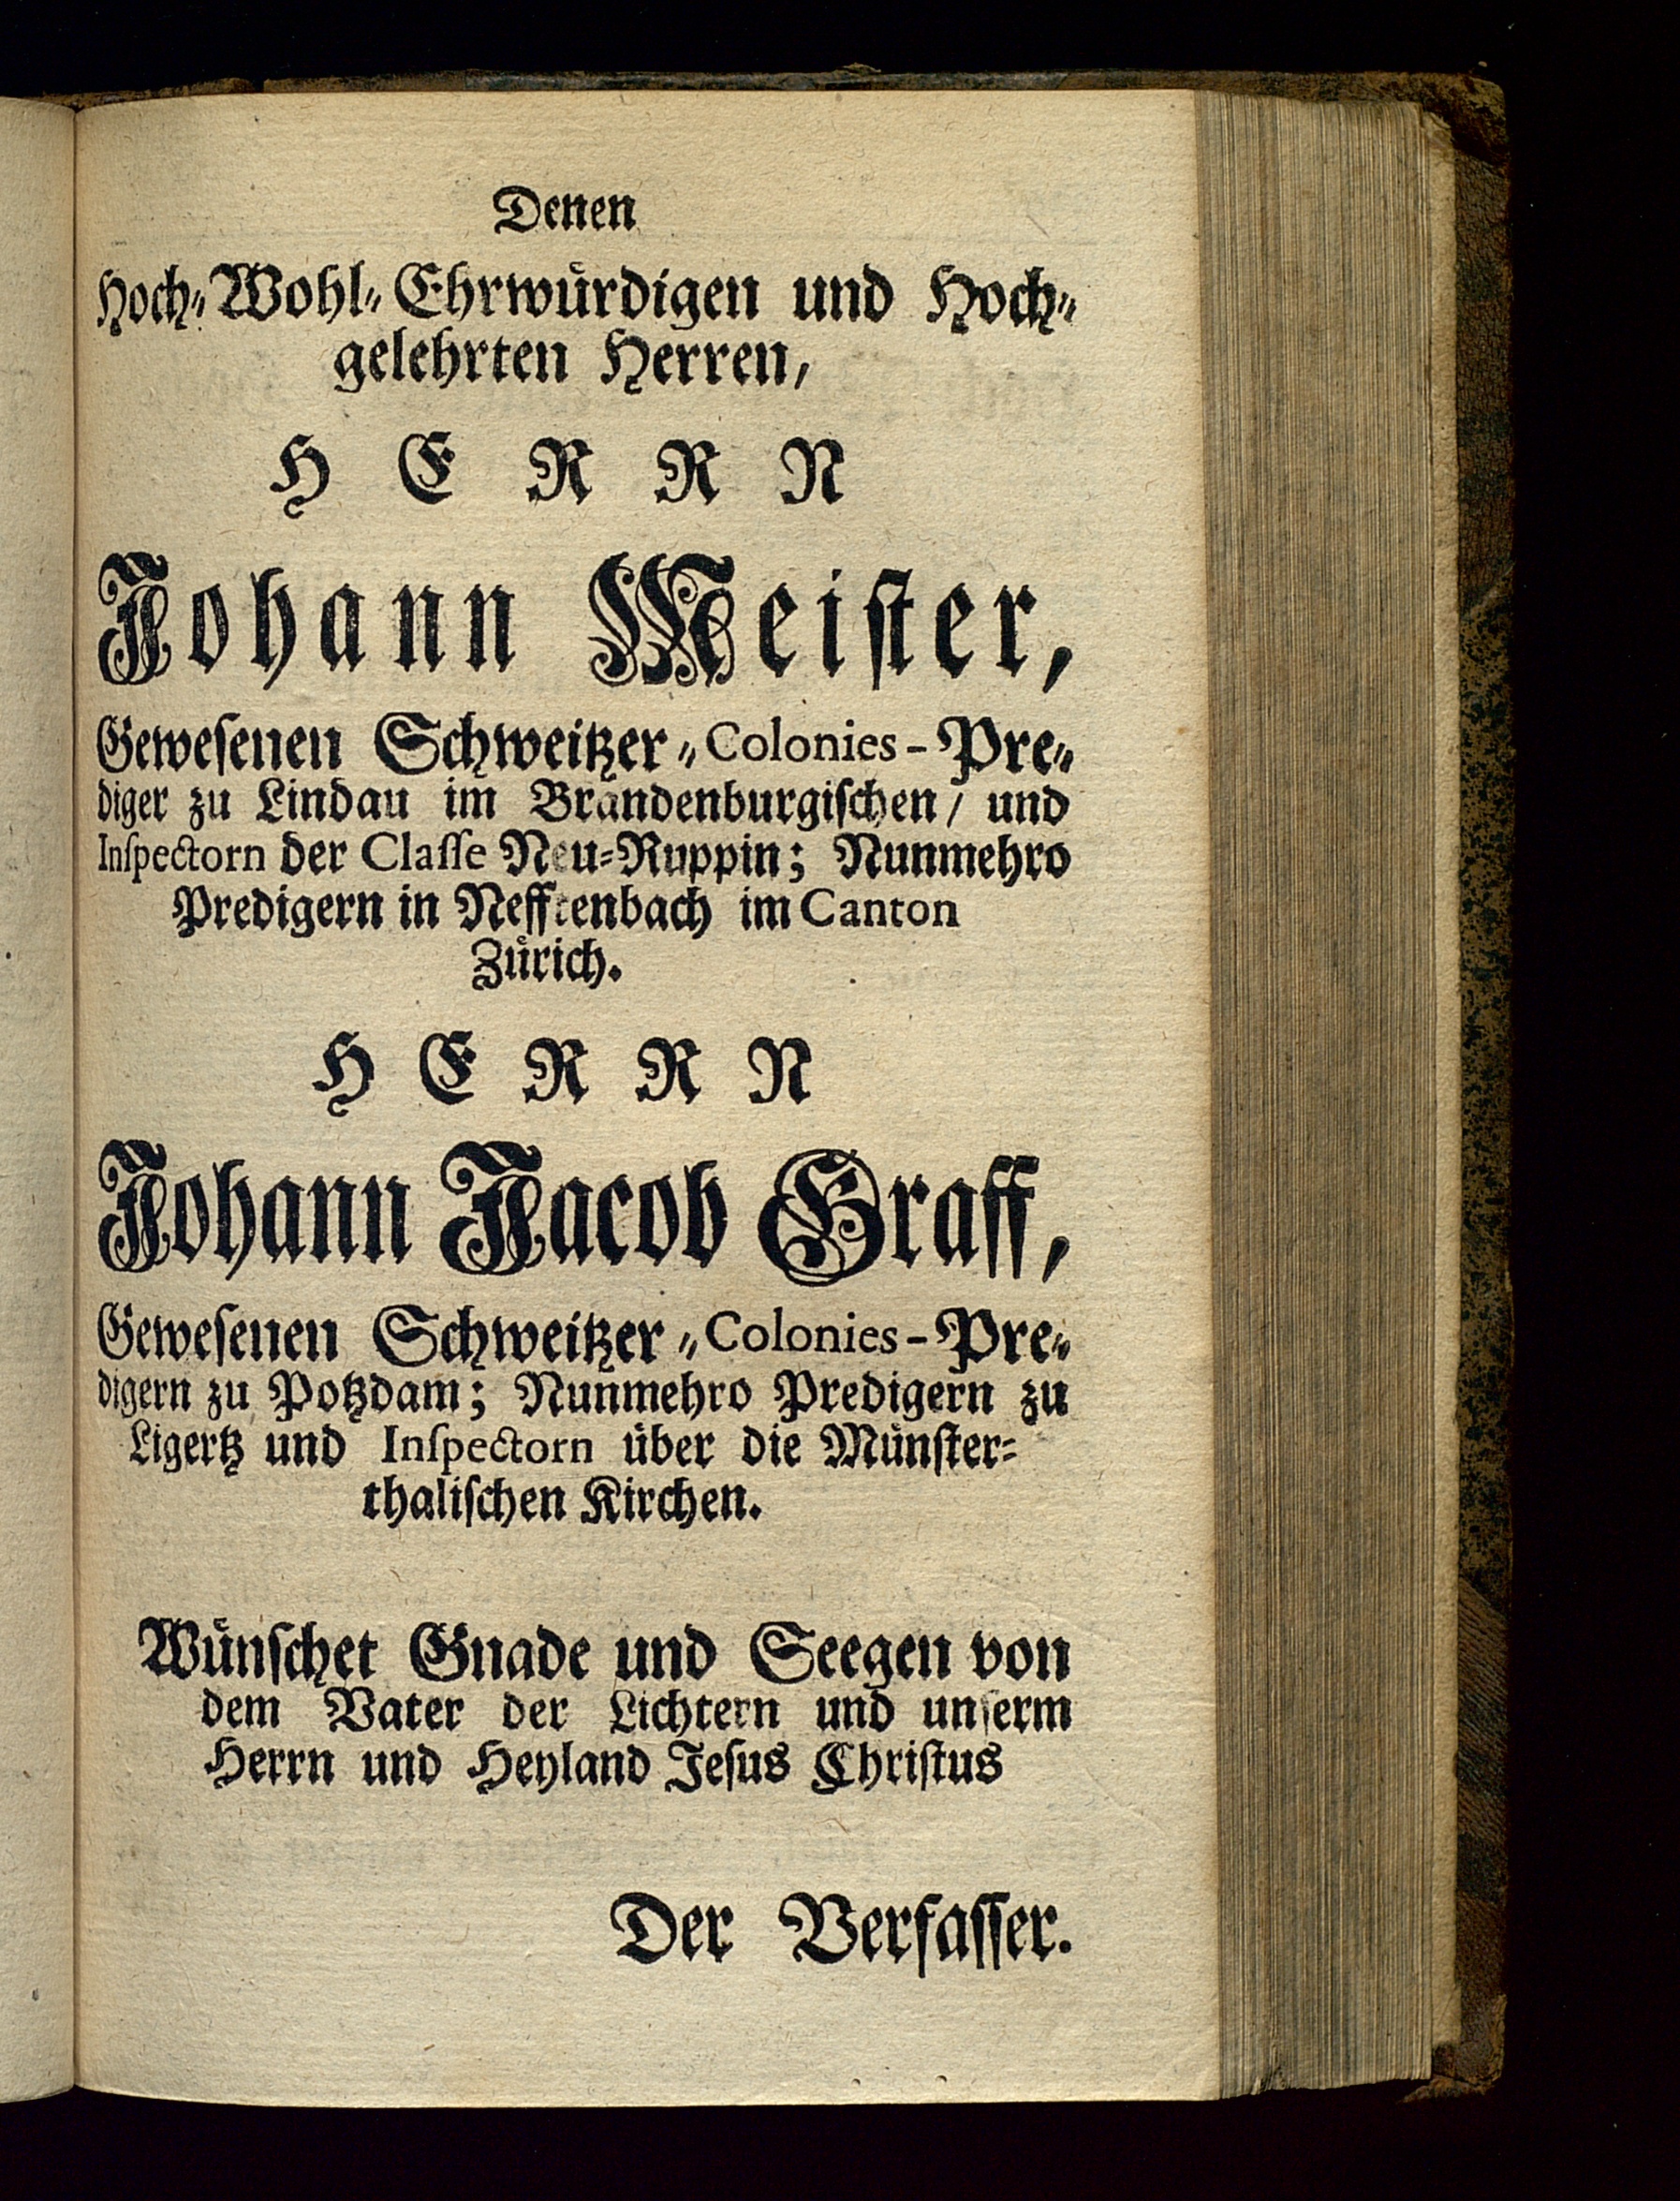 Denen
Hoch-Wohl-Ehrwürdigen und Hoch-
gelehrten Herren,
HERRN
Johann Meister,
Gewesenen Schweitzer-Colonies-Pre-
diger zu Lindau im Brandenburgischen/ und
Inspectorn der Classe Neu-Ruppin; Nunmehro
Predigern in Nefftenbach im Canton
Zürich.
HERRN
Johann Jacob Graff,
Gewesenen Schweitzer-Colonies-Pre-
digern zu Potzdam; Nunmehro Predigern zu
Ligertz und Inspectorn über die Münster-
thalischen Kirchen.
Wünschet Gnade und Seegen von
dem Vater der Lichtern und unserm
Herrn und Heyland Jesus Christus
Der Verfasser.